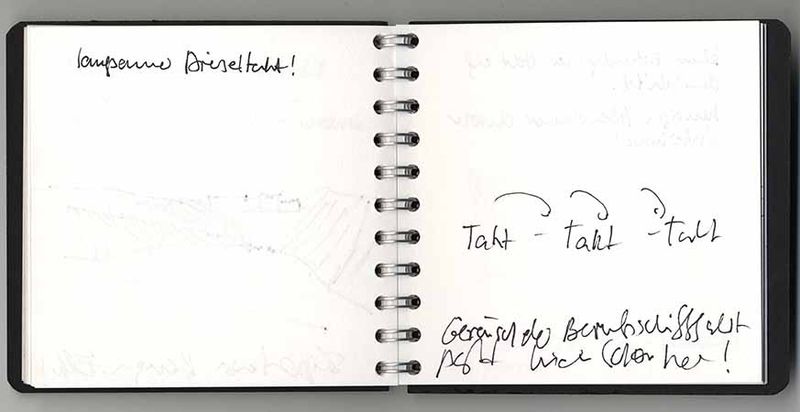 langsamer Dieseltakt!
Takt - Takt - Takt
Geräusch der Berufsschifffahrt
paßt hier schon her!